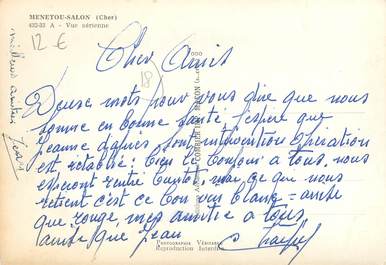 MENETOU-SALON (Cher)
432-33 A - Vue aérienne
12 €
Cher Amis
18
Deuse mots pour vous dire que nous
somme en bonne santé, j'espere que
Jeanne dapuis sont intervention opération
est rétablie. bien le bonjour a tous, nous
esperons rentre bientot mai ce qui nous
retient c'est ce bon vin blanc
que rouge, mes amitié a tous
amitie que Jean
meilleurs amities
Jean
PHOTOGRAPHIE VÉRITABLE
Reproduction Interdite